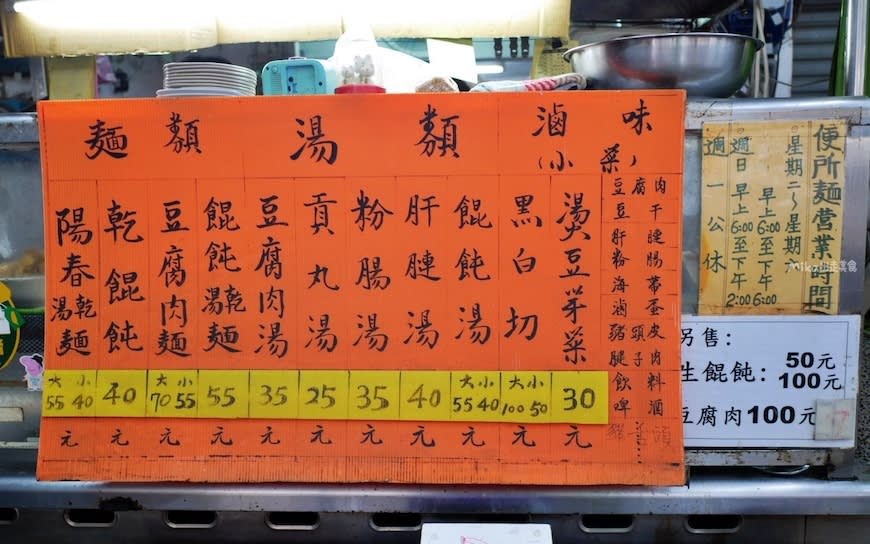 麵類
湯類
滷味
(小菜)
陽春湯乾麵
大55 小40
元
乾餛飩
40
元
豆腐肉麵
大70 小55
元
餛飩湯乾麵
55
元
豆腐肉湯
35
元
貢丸湯
25
元
粉腸湯
35
元
肝腱湯
40
元
餛飩湯
大55 小40
元
黑白切
大100 小50
元
燙豆芽菜
30
元
豆腐肉
豆干
肝腱
粉腸
海帶
滷蛋
豬頭皮
腿子肉
飲料
啤酒
豬舌頭
便所麵營業時間
星期二~星期六
早上6:00至下午6:00
週日早上6:00至下午2:00
週一公休
另售:
生餛飩: 50元
100元
豆腐肉100元